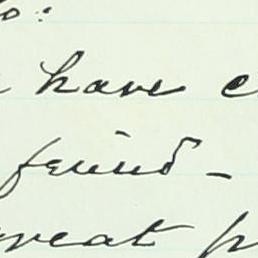 o:
have c
friend -
great p